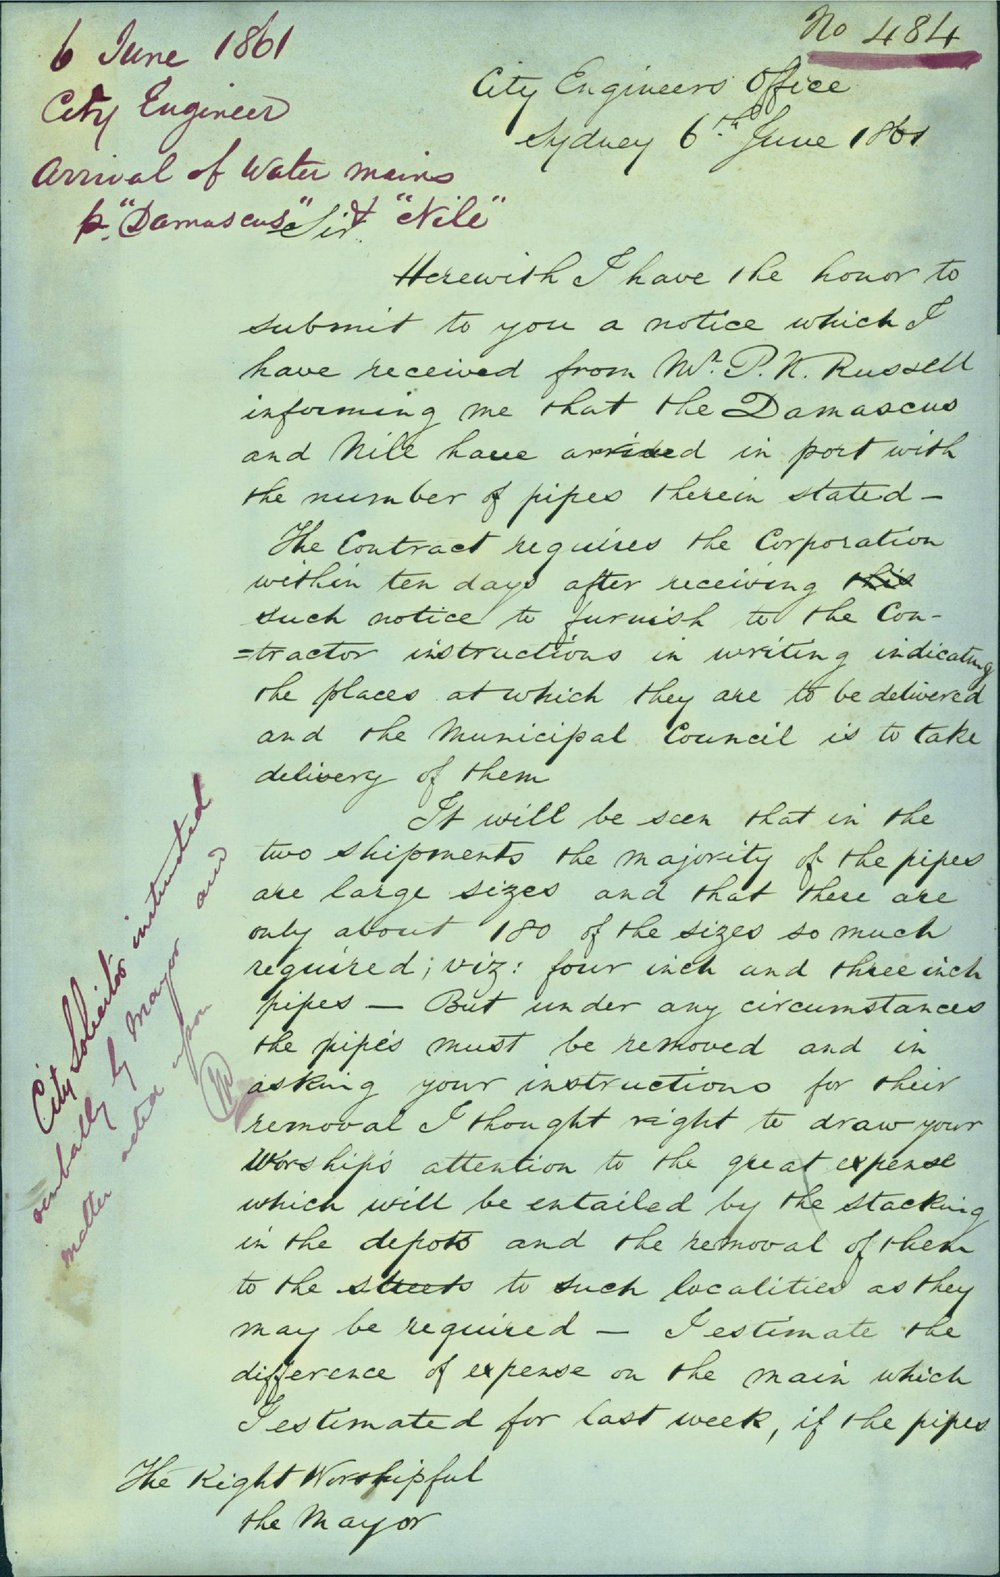 No 484
6 June 1861
City Engineer
Arrival of Water mains
p. "Damascus" & "Nile"
City Engineers Office
Sydney 6th June 1861
Sir
Herewith I have the honor to
submit to you a notice which I
have received from Mr. P. N. Russell
informing me that the Damascus
and Nile have arrived in port with
the number of pipes therein stated —
The Contract requires the Corporation
within ten days after receiving this
such notice to furnish to the Con-
=tractor instructions in writing indicating
the places at which they are to be delivered
and the Municipal Council is to take
delivery of them
It will be seen that in the
two shipments the majority of the pipes
are large sizes and that there are
only about 180 of the sizes so much
required; viz: four inch and three inch
pipes — But under any circumstances
the pipes must be removed and in
asking your instructions for their
removal I thought right to draw your
Worship's attention to the great expense
which will be entailed by the stacking
in the depots and the removal of them
to the streets to such localities as they
may be required — I estimate the
difference of expense on the main which
I estimated for last week, if the pipes
The Right Worshipful
the Mayor
City Solicitor instructed
verbally by Mayor and
matter acted upon